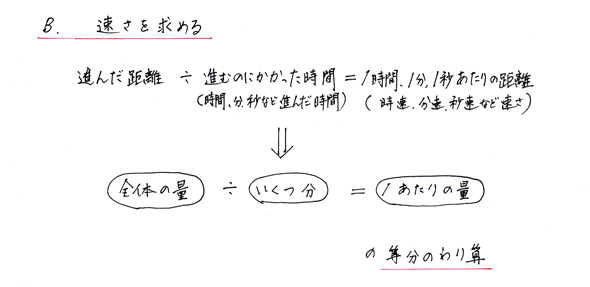 B. 速さを求める
進んだ距離 ÷ 進むのにかかった時間 = 1時間、1分、1秒あたりの距離
(時間、分、秒など進んだ時間) (時速、分速、秒速など速さ)
⇓
全体の量 ÷ いくつ分 = 1あたりの量
の等分のわり算